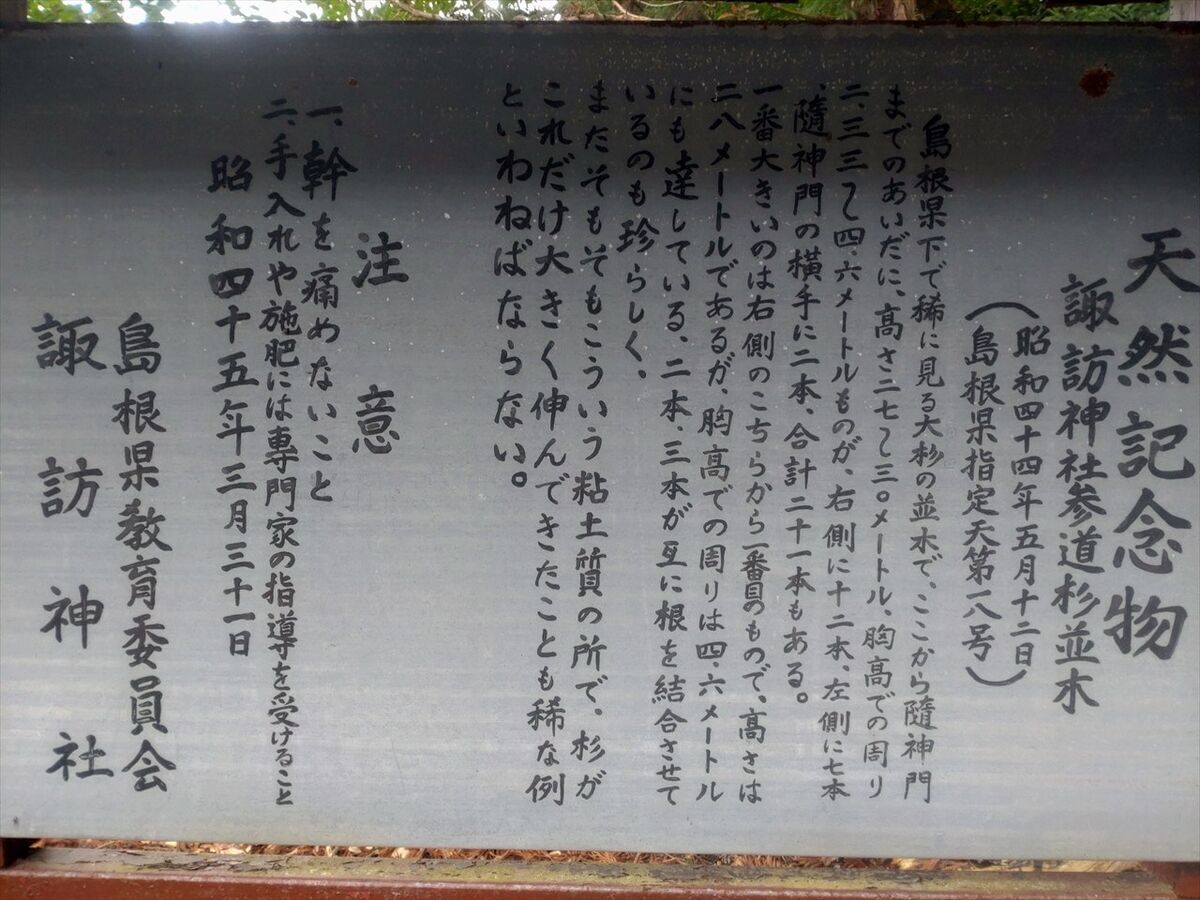 天然記念物
諏訪神社参道杉並木
（昭和四十四年五月十二日）
（島根県指定天第一八号）
島根県下で稀に見る大杉の並木で、ここから隨神門
までのあいだに、高さ二七〜三〇メートル、胸高での周り
二、三三〜四、六メートルものが、右側に十二本、左側に七本
、隨神門の横手に二本、合計二十一本もある。
一番大きいのは右側のこちらから一番目のもので、高さは
二八メートルであるが、胸高での周りは四、六メートル
にも達している、二本、三本が互に根を結合させて
いるのも珍らしく、
またそもそもこういう粘土質の所で、杉が
これだけ大きく伸んできたことも稀な例
といわねばならない。
注意
一、幹を痛めないこと
二、手入れや施肥には専門家の指導を受けること
昭和四十五年三月三十一日
島根県教育委員会
諏訪神社